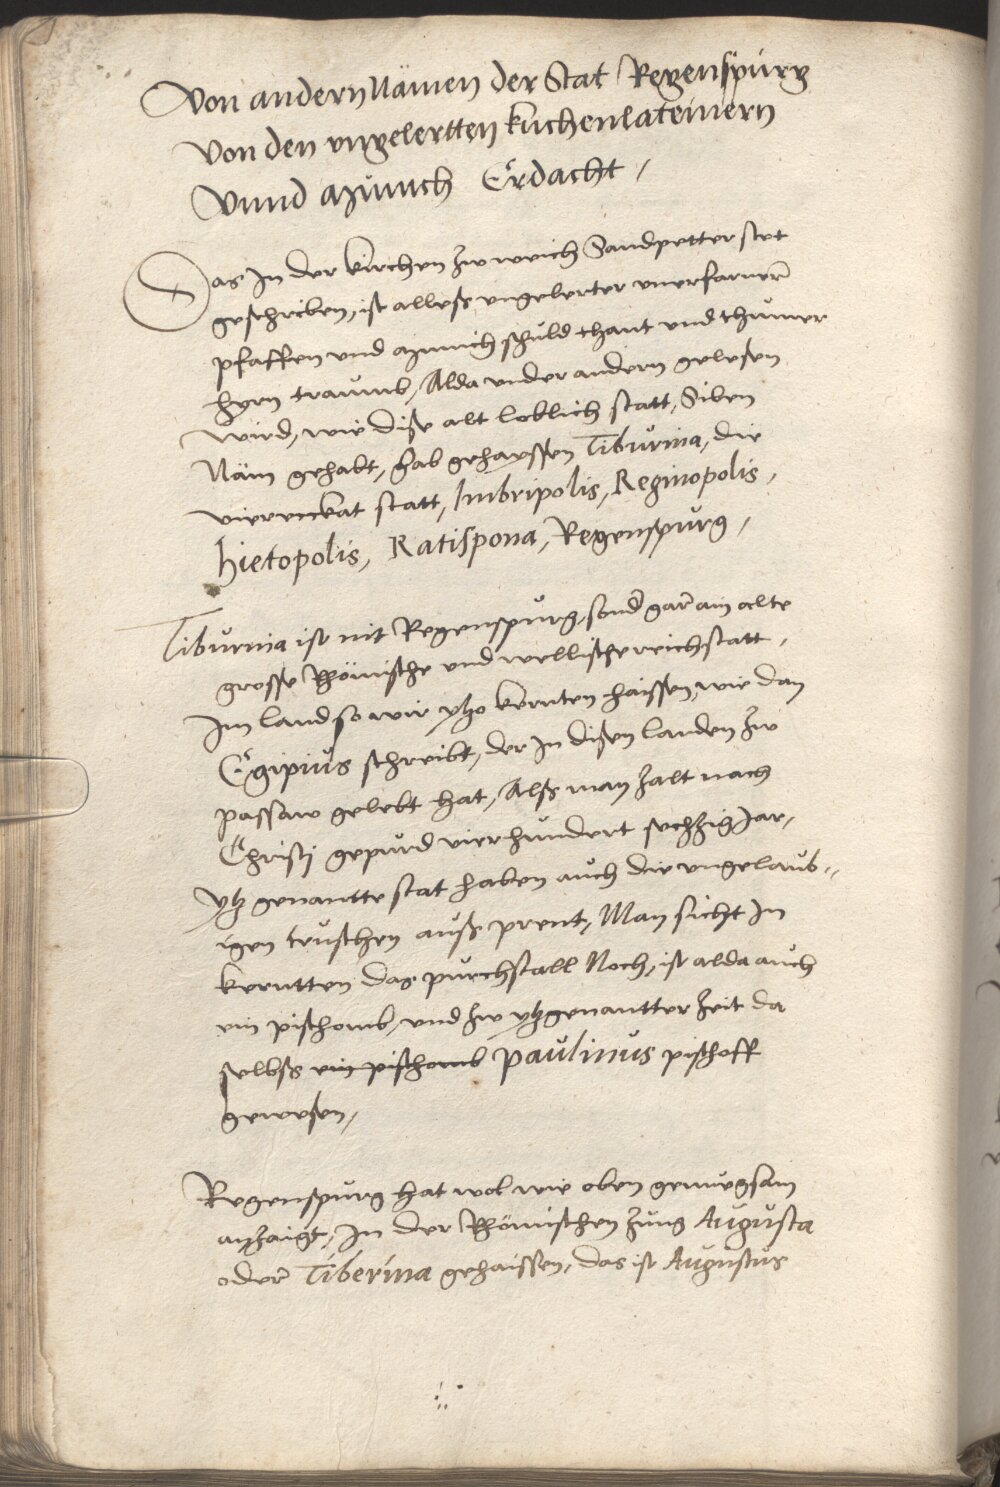 Von andern Nämen der Stat Regenspurg
Von den vngelertten kuchenlateinern
Vnnd aẏnnich Erdacht,
Das In der kirchen zw weich Sandpetter stet
geschriben, ist alleß vngelerter vnerfarner
pfaffen und aẏnnich schuld thant und thumer
hyrn traumb, Alda vnder andern gelesen
wird, wie dise alt loblich statt, Siben
Näm gehabt, hab gehayssen Tiburnia, die
viereckat statt, Imbripolis, Reginopolis,
hietopolis, Ratispona, Regenspurg,
Tiburnia ist nit Regenspurg, sonder gar ain alte
grosse Rhömische und wellische reichstatt,
Im land so wir ytzo kernten haissen, wie dan
Egipius schreibt, der In disen landen zw
passaw gelebt hat, Alß man zalt nach
Christi gepurd vierhundert sechzig Jar,
ytz genantte stat haben auch die vngelaub-
igen teuschen auß prent, Man sicht In
kerntten das purchstall Noch, ist alda auch
ein pischomb, und zw ytzgenantter zeit da
selbst ein pischomb Paulinus pischoff
gewesen,
Regenspurg hat wol wie oben genuegsam
anzaigt, In der Rhömischen zung Augusta
oder Tiberina gehaissen, das ist Augustus